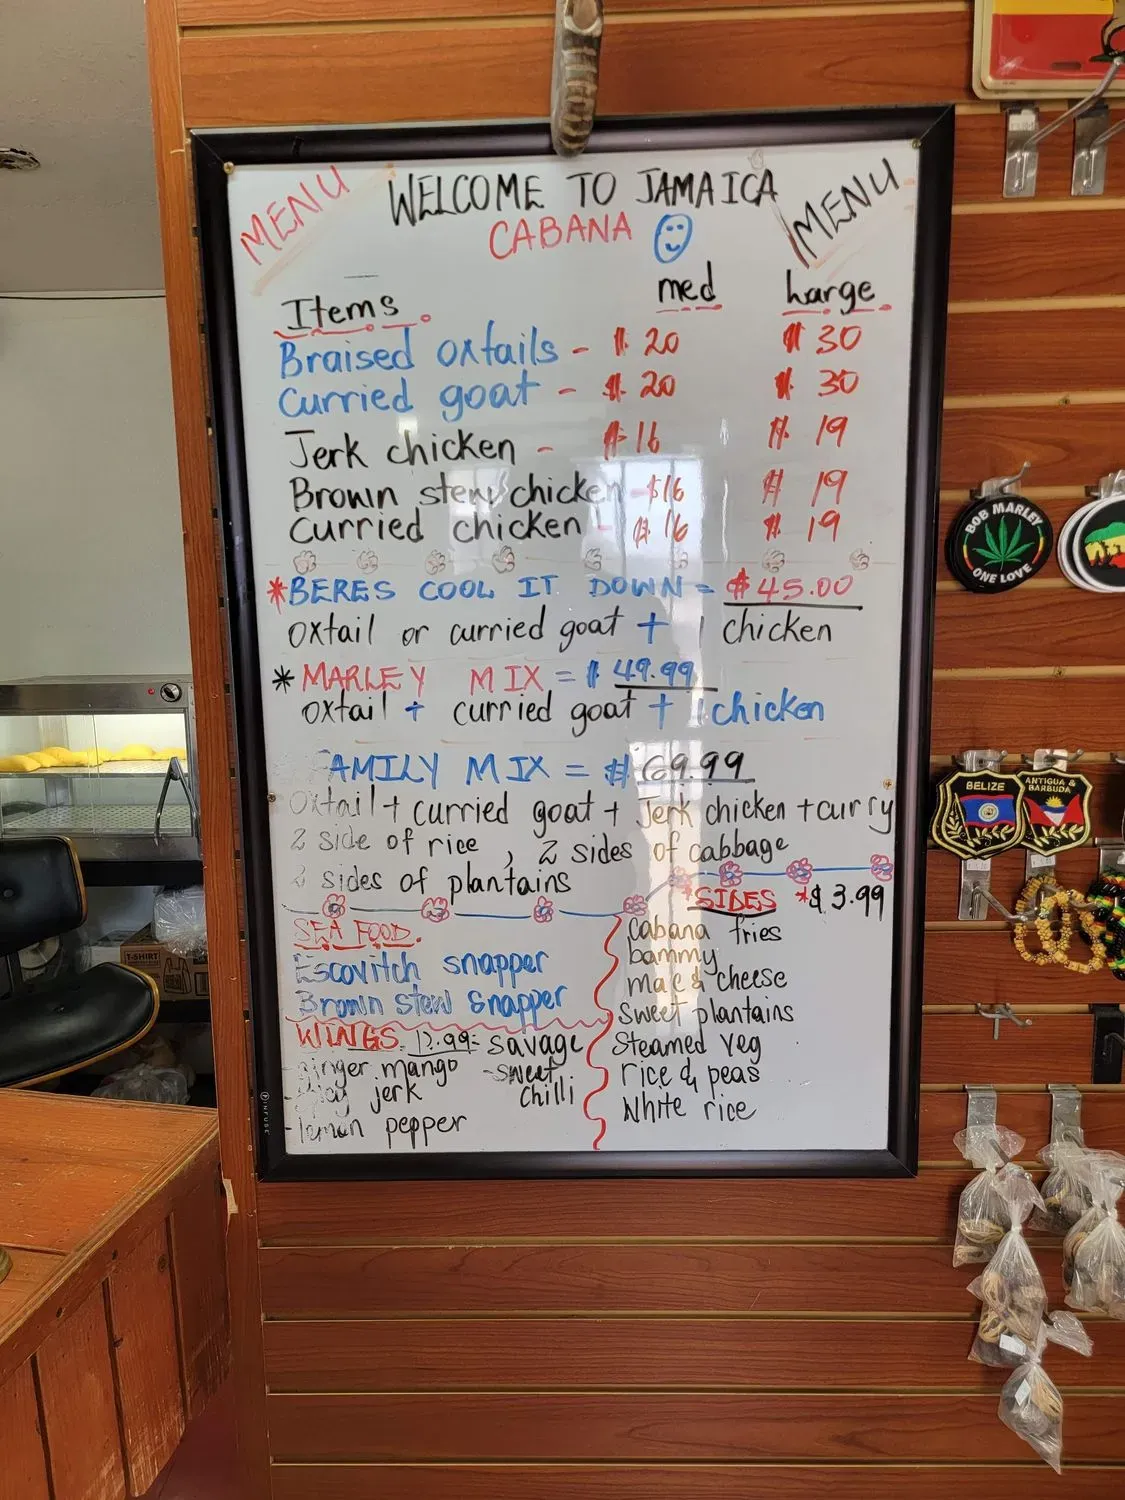 MENU
WELCOME TO JAMAICA
MENU
CABANA
Items med harge
Braised oxtails - $ 20 $ 30
Curried goat - $ 20 $ 30
Jerk chicken - $ 16 $ 19
Brown stew chicken - $16 $ 19
Curried chicken - $ 16 $ 19
*BERES COOL IT DOWN = $45.00
oxtail or curried goat + 1 chicken
*MARLEY MIX = $ 49.99
oxtail + curried goat + 1 chicken
FAMILY MIX = $ 69.99
Oxtail + curried goat + Jerk chicken + curry
2 side of rice , 2 sides of cabbage
2 sides of plantains
*SIDES *$ 3.99
cabana fries
bammy
mac & cheese
Sweet plantains
Steamed veg
rice & peas
White rice
SEA FOOD.
Escovitch snapper
Brown stew Snapper
WINGS 12.99- savage
-ginger mango -sweet
jerk chilli
-lemon pepper
BOB MARLEY
ONE LOVE
BELIZE
ANTIGUA &
BARBUDA
T-SHIRT
INFUSE